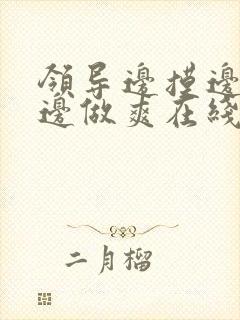 領导邊摸邊
邊做爽在綫
二月榴